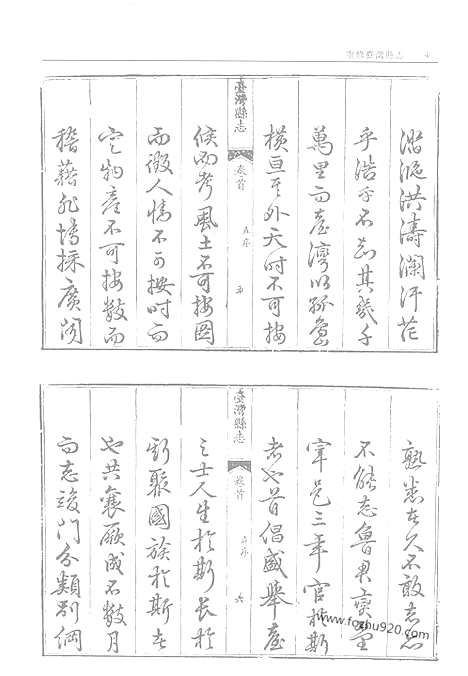 重修臺灣縣志
四
滔滬洪濤瀾汗茫
乎浩乎不知其幾千
萬里而臺灣以孤島
橫亘其外天時不可按
臺灣縣志
卷首
五
候而考風土不可按圖
而徵人情不可按時而
定物產不可按數而
稽藉非博採廣詢
熟悉者久不敢志亦
不能志魯君
宰邑三年官於斯
者也首倡盛舉臺
臺灣縣志
卷首
六
之士人生於斯長於
斯聚國族於斯者
也共襄厥成不數月
而志竣門分類別綱
www.fozhu920.com